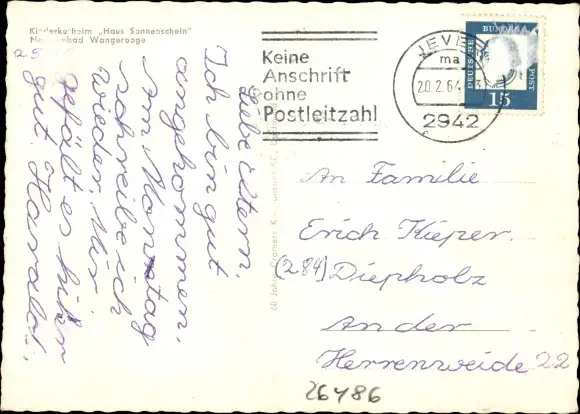 Kinderkurheim „Haus Sonnenschein"
Nordseebad Wangerooge
Liebe Eltern,
Ich bin gut
angekommen,
am Montag
schreibe ich
wieder, Mir
gefält es hier
gut. Harald.
Keine
Anschrift
ohne
Postleitzahl
JEVER
ma
20.2.64
2942
DEUTSCHE
BUNDES
POST
15
An Familie
Erich Kieper.
(284) Diepholz
An der
Herrenweide 22
60 Jahre Cramers
26486